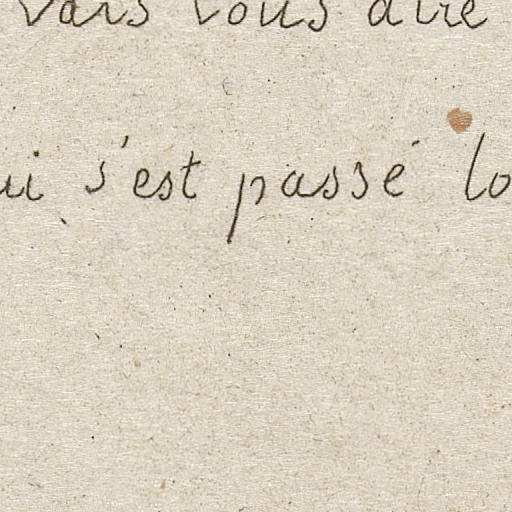 vais vous dire
ui s'est passé lo